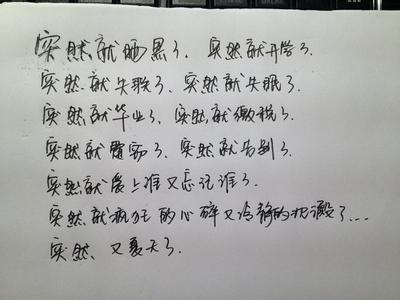 突然就晒黑了、突然就开学了、
突然就失联了、突然就失眠了、
突然就毕业了、突然就缴税了、
突然就了、突然就告别了、
突然就爱上谁又忘记谁了、
突然就疯狂的心碎又冷静的沉澱了...
突然、又夏天了、